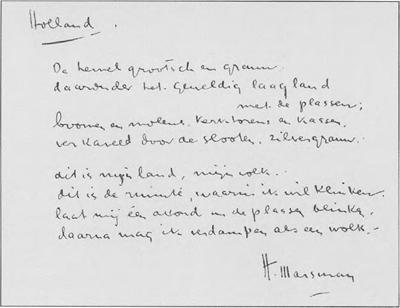 Holland.
De hemel grootsch en grauw
daaronder het geweldig laagland
met de plassen;
boomen en molens, kerktorens en kassen
verkaveld door de slooten, zilvergrauw.
dit is mijn land, mijn volk.
dit is de ruimte, waarin ik wil klinken.
laat mij één avond in de plassen blinken,
daarna mag ik verdampen als een wolk.-
H. Marsman